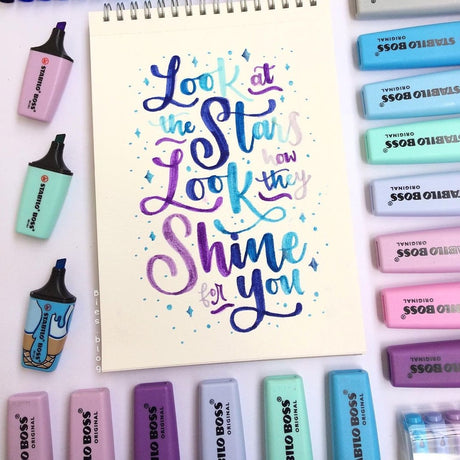 Look at
the Stars
Look how
they
Shine
for You
STABILO BOSS
STABILO BOSS
STABILO BOSS
STABILO BOSS
ORIGINAL
STABILO BOSS
ORIGINAL
STABILO BOSS
ORIGINAL
STABILO BOSS
ORIGINAL
STABILO BOSS
ORIGINAL
STABILO BOSS
ORIGINAL
STABILO BOSS
ORIGINAL
BOSS
ORIGINAL
BOSS
ORIGINAL
STABILO BOSS
ORIGINAL
STABILO BOSS
ORIGINAL
STABILO BOSS
ORIGINAL
STABILO BOSS
ORIGINAL